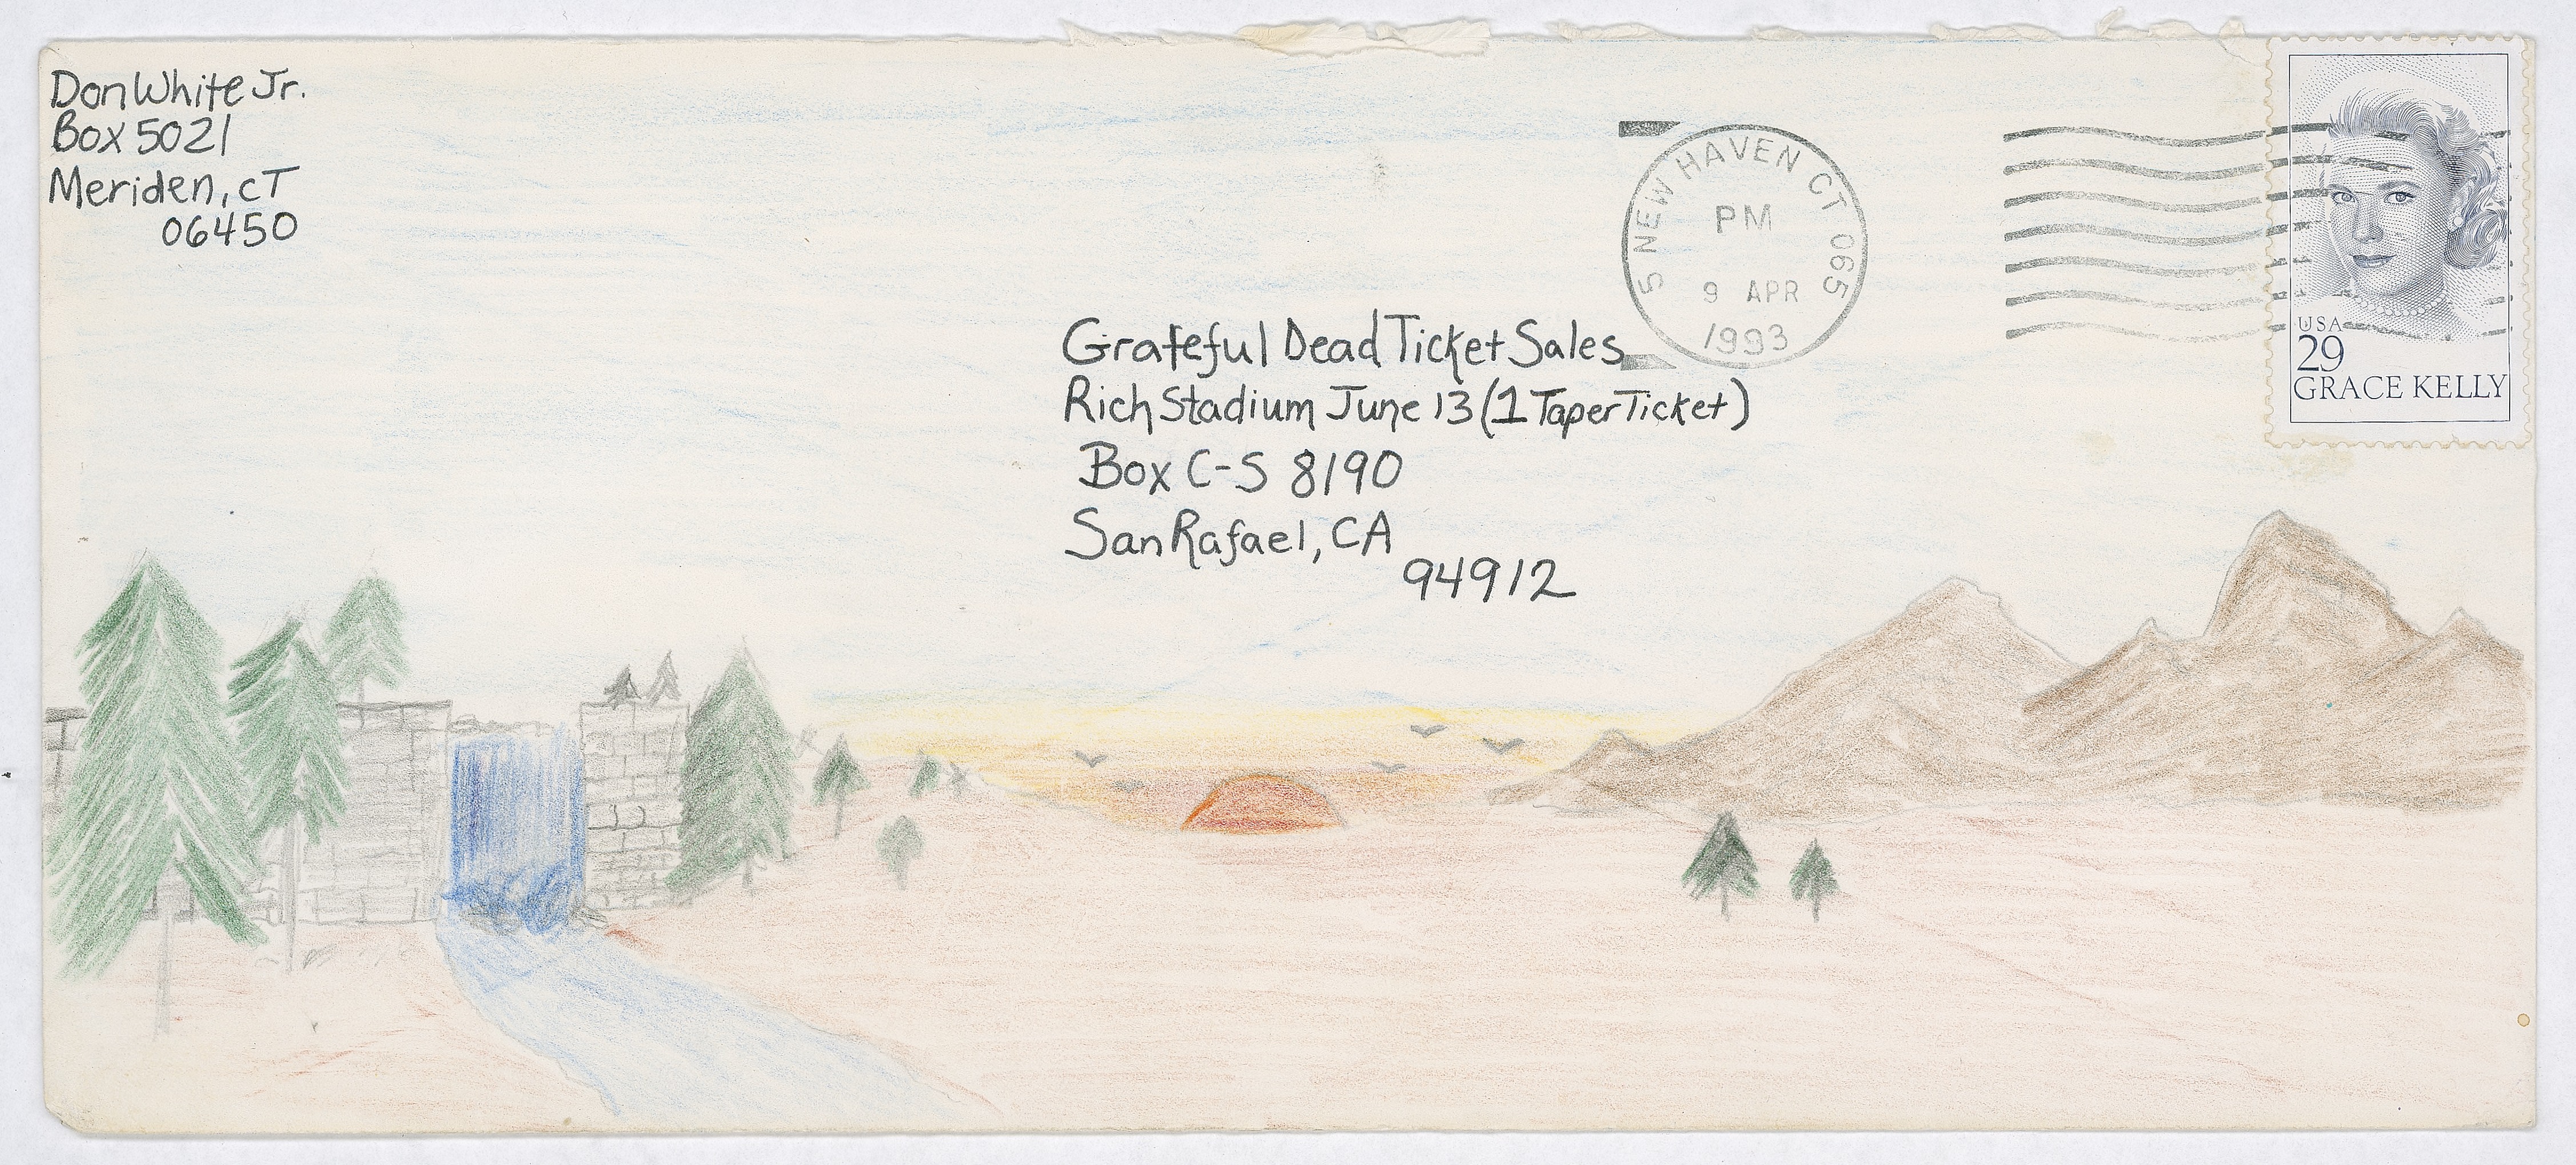 Don White Jr.
Box 5021
Meriden, CT
06450
5 NEW HAVEN CT 065
PM
9 APR
1993
USA
29
GRACE KELLY
Grateful Dead Ticket Sales
Rich Stadium June 13 (1 Taper Ticket)
Box C-S 8190
San Rafael, CA
94912